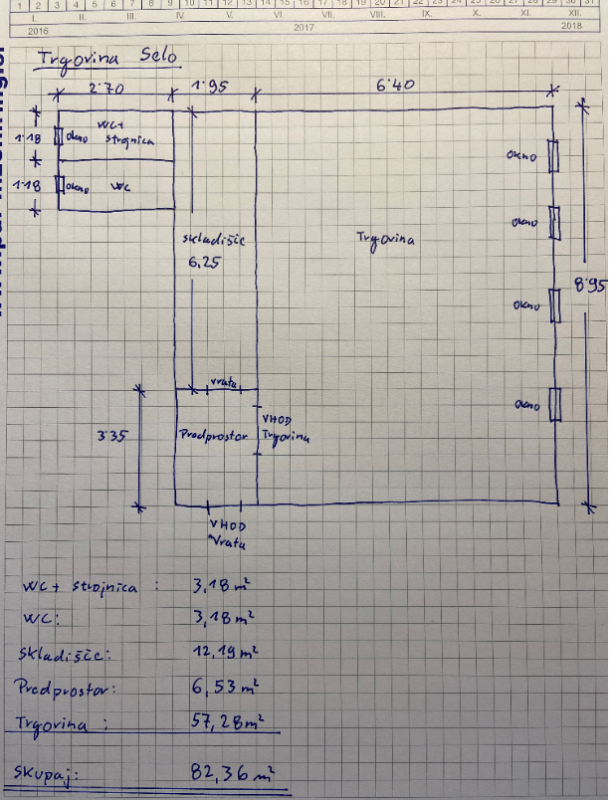 1 2 3 4 5 6 7 8 9 10 11 12 13 14 15 16 17 18 19 20 21 22 23 24 25 26 27 28 29 30 31
I. II. III. IV. V. VI. VII. VIII. IX. X. XI. XII.
2016 2017 2018
Trgovina Selo
2.70 1.95 6.40
1.18 okno WC+
strojnica
1.18 okno WC
okno
okno
okno
okno
skladišče
6,25
Trgovina
8.95
vrata
3.35
Predprostor
VHOD
Trgovina
VHOD
Vrata
WC + strojnica : 3,18 m²
WC: 3,18 m²
Skladišče: 12,19 m²
Predprostor: 6,53 m²
Trgovina : 57,28 m²
Skupaj: 82,36 m²